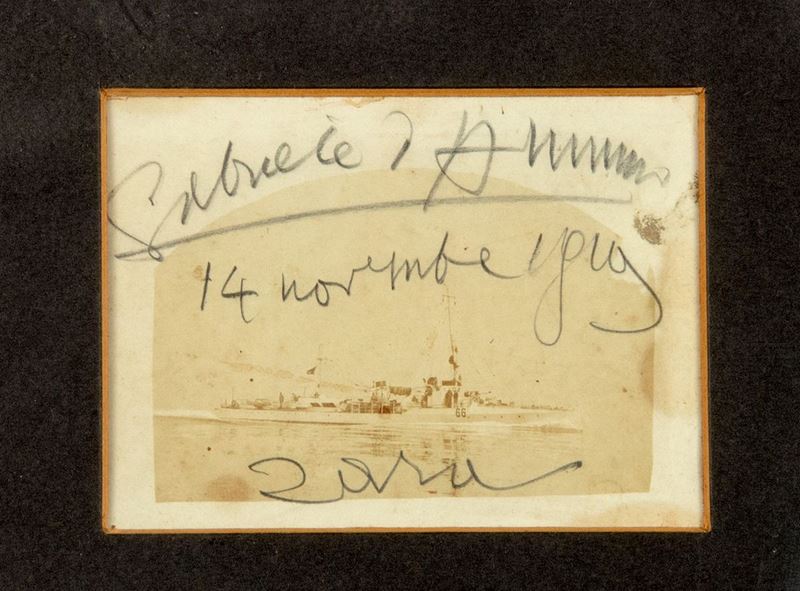 Gabriele d'Annunzio
14 novembre 1919
66
Zara